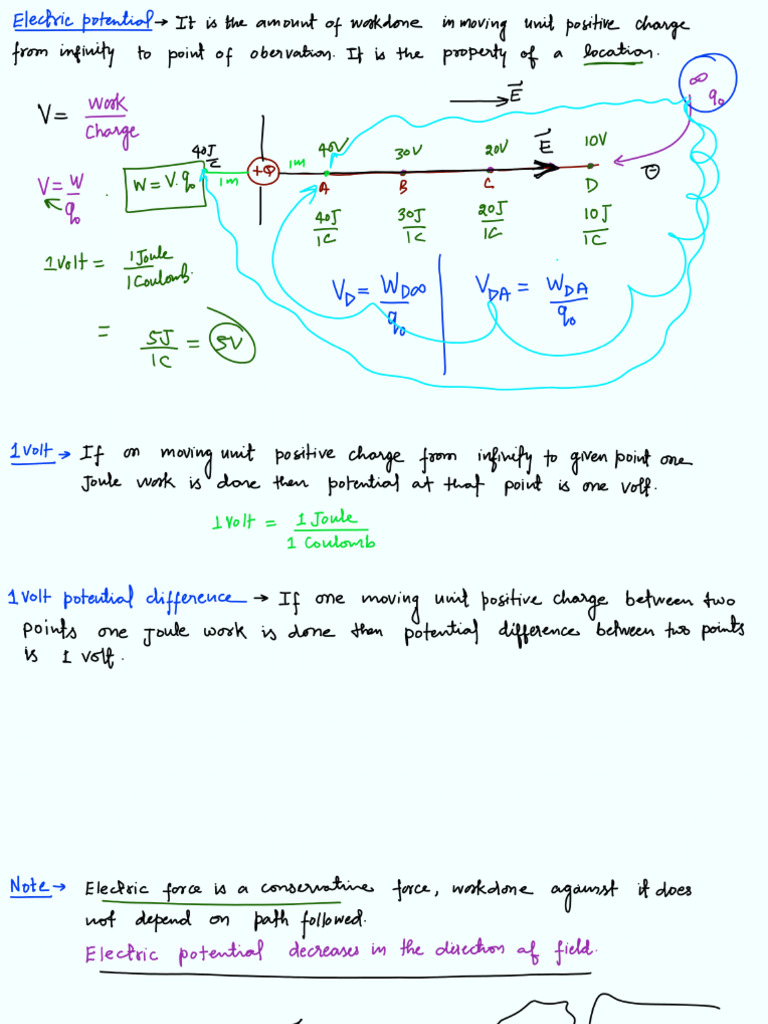 Electric potential → It is the amount of workdone in moving unit positive charge
from infinity to point of obervation. It is the property of a location.
V = Work / Charge
V = W / q₀
W = V·q₀
1 Volt = 1 Joule / 1 Coulomb
= 5J / 1C = 5V
E⃗
∞
q₀
40J / C
40V 30V 20V E⃗ 10V
1m +Q 1m
A B C D
40J / 1C 30J / 1C 20J / 1C 10J / 1C
V_D = W_D∞ / q₀
V_DA = W_DA / q₀
1 Volt → If on moving unit positive charge from infinity to given point one
Joule work is done then potential at that point is one volt.
1 Volt = 1 Joule / 1 Coulomb
1 Volt potential difference → If one moving unit positive charge between two
points one Joule work is done then potential difference between two points
is 1 volt.
Note → Electric force is a conservative force, workdone against it does
not depend on path followed.
Electric potential decreases in the direction of field.